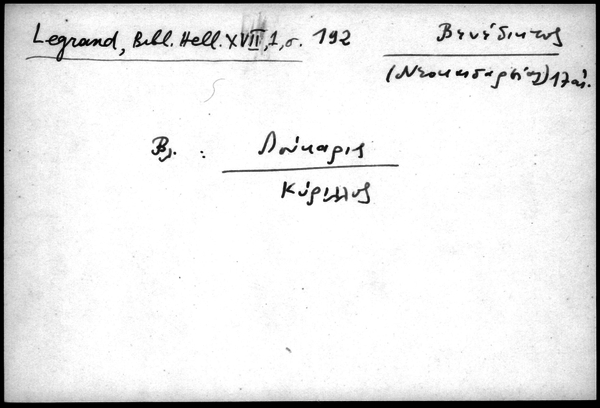 Legrand, Bibl. Hell. XVII, 1, σ. 192
Βενέδικτος
(Νεοκαισαρείας) 17 αἰ.
Βλ. : Λούκαρις
Κύριλλος